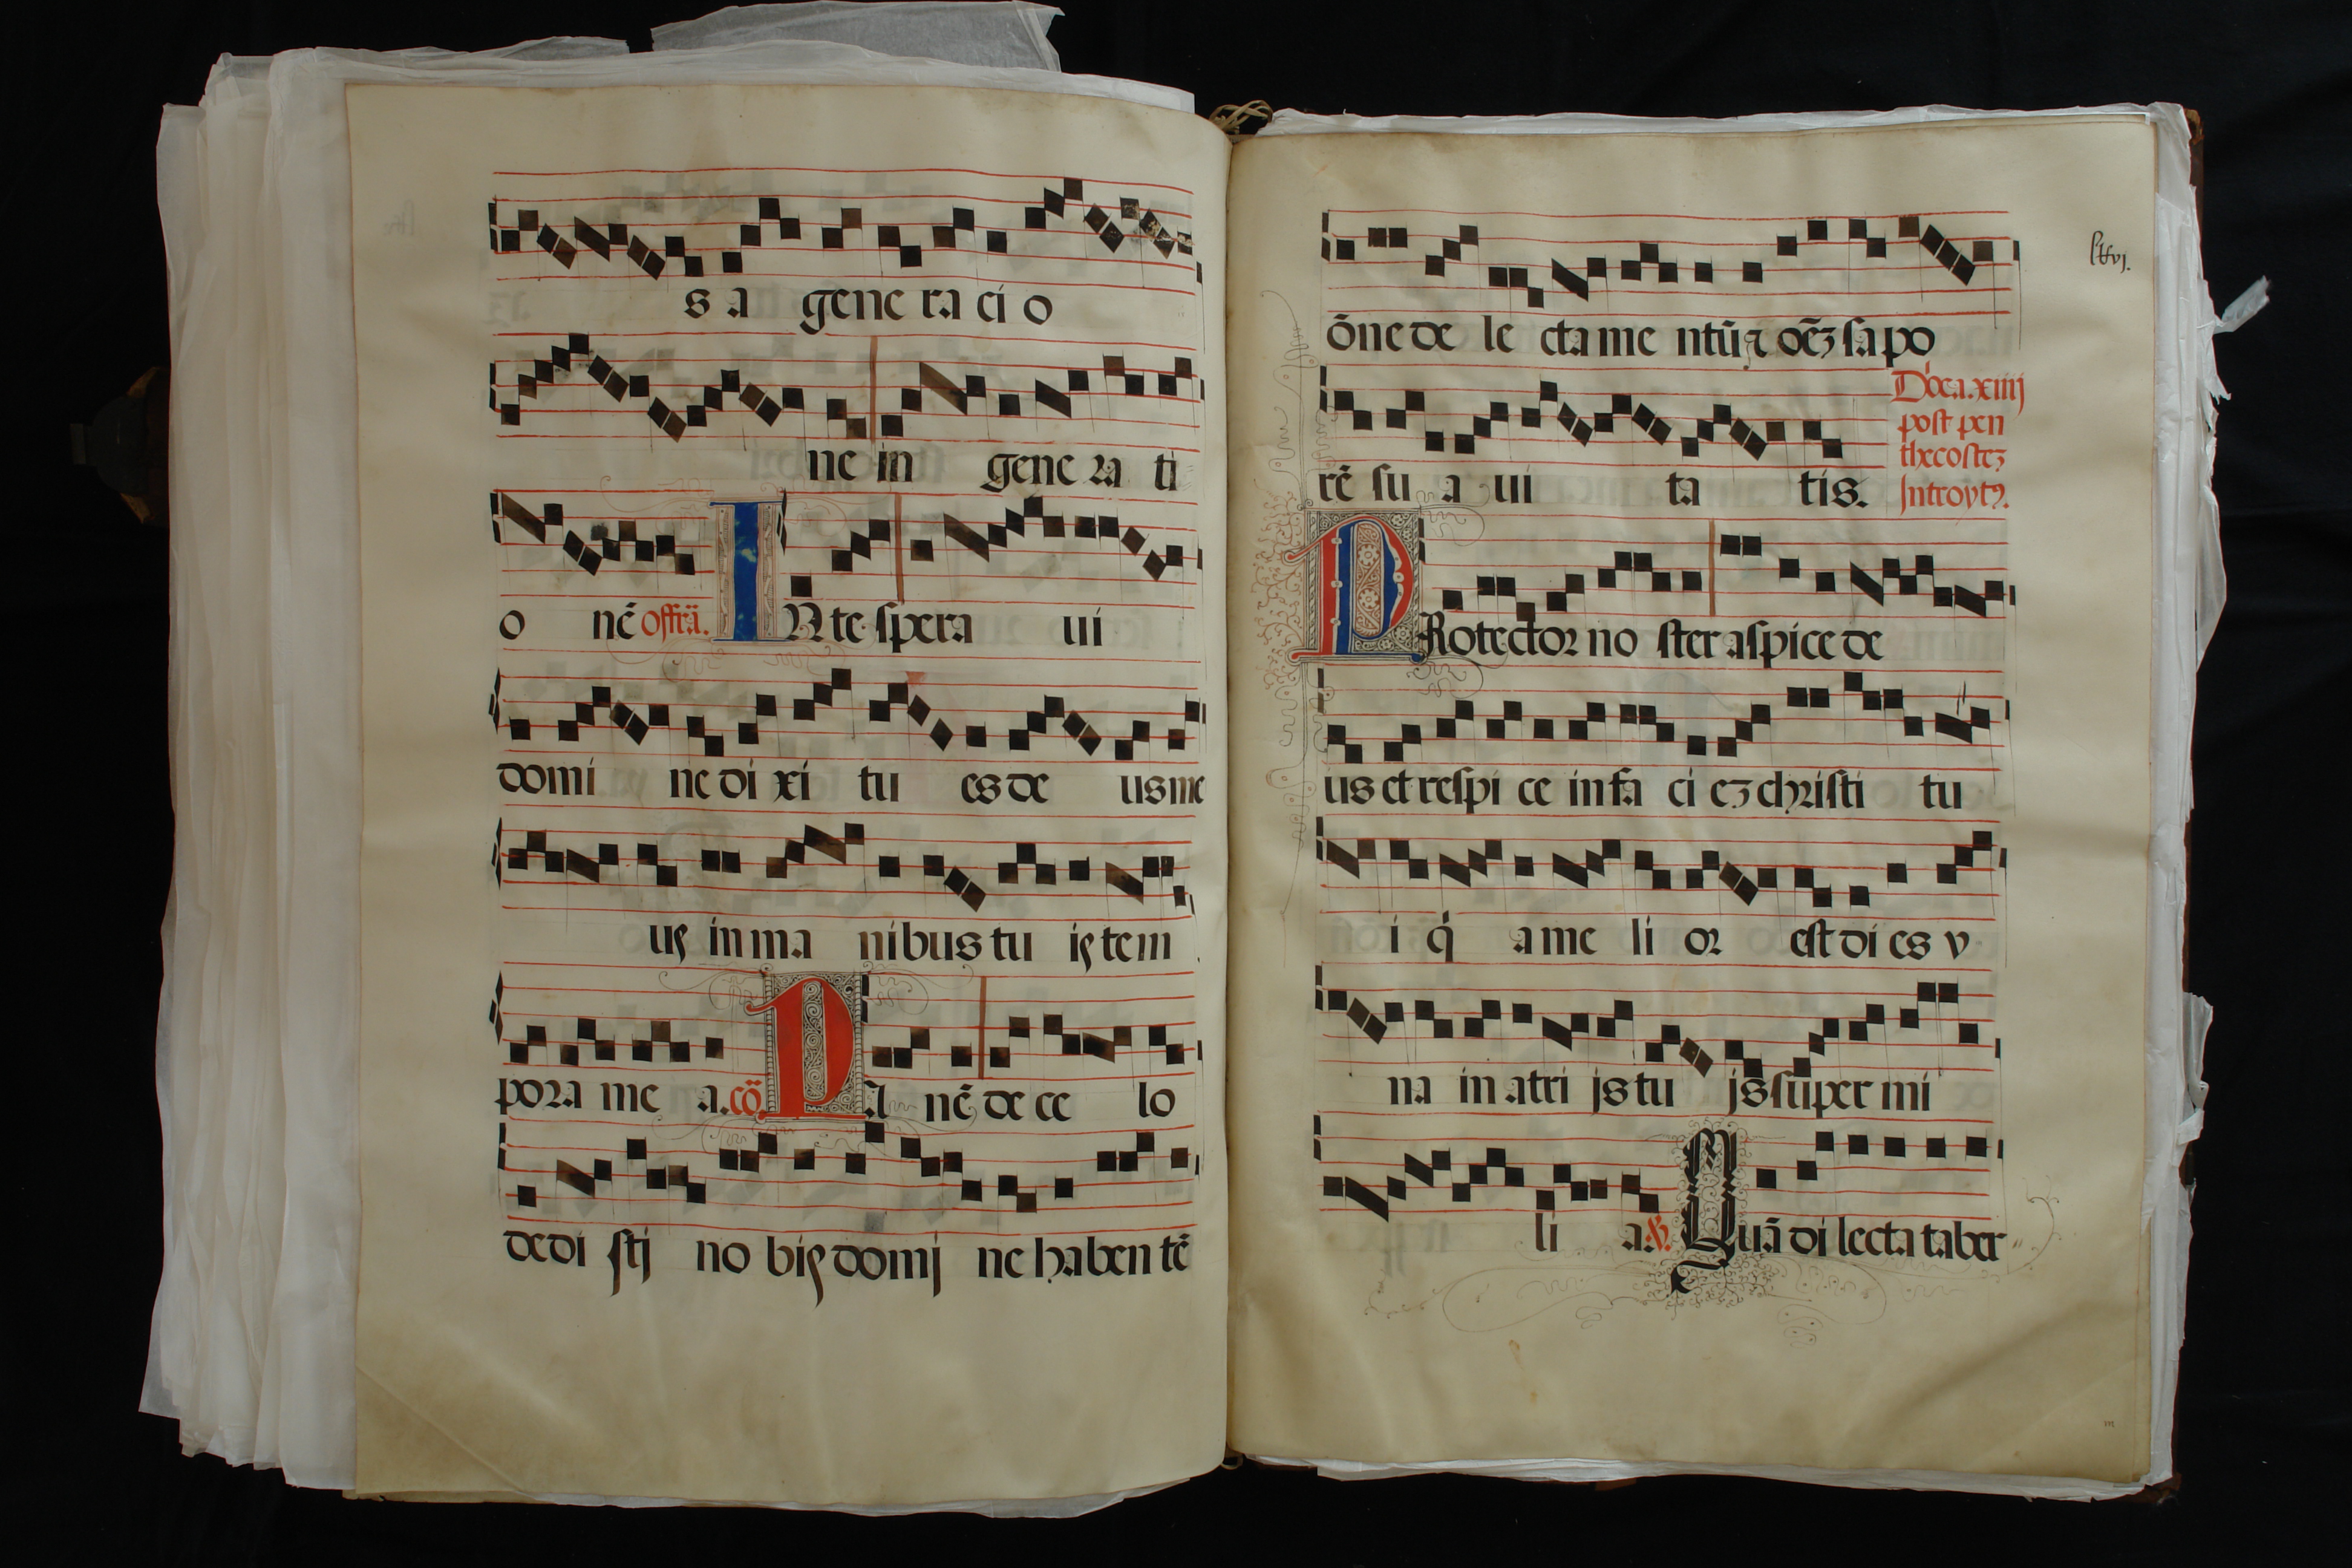 s a gene ra ci o
ne in gene ra ti
o nē offrā. IN te spera ui
domi ne di xi tu es de us me
us in ma nibus tu is tem
pora me a. cō. PA nē de ce lo
dedi stj no bis domj ne haben tē
lxvj.
ōne de le cta me ntū ⁊ oēȝ sapo
rē su a ui ta tis.
Dōca. xiiij
post pen
thecosteȝ
Introytꝰ.
PRotector no ster aspice de
us et respi ce in fa ci eȝ christi tu
i q̇ a me li or est di es v
na in atri js tu js super mi
li a. ℣. Quā di lecta taber